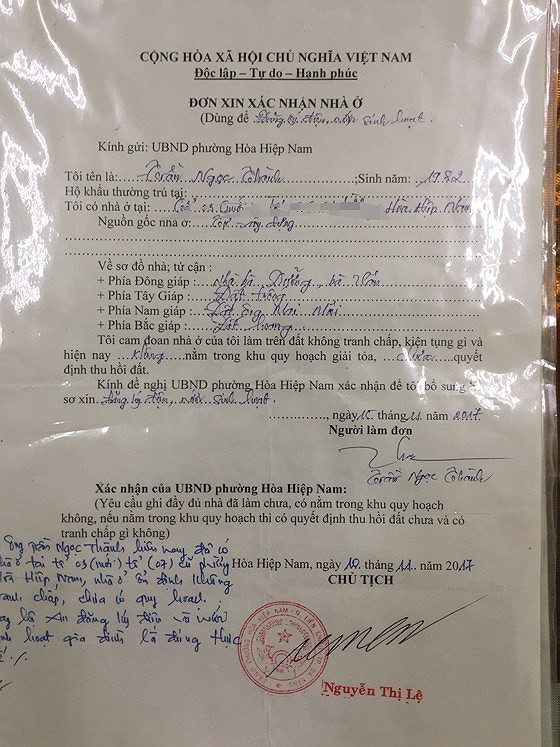 CỘNG HÒA XÃ HỘI CHỦ NGHĨA VIỆT NAM
Độc lập – Tự do – Hạnh phúc
ĐƠN XIN XÁC NHẬN NHÀ Ở
(Dùng để Đăng ký điện, nước sinh hoạt.
Kính gửi: UBND phường Hòa Hiệp Nam
Tôi tên là: Trần Ngọc Thành ;Sinh năm: 1982
Hộ khẩu thường trú tại:
Tôi có nhà ở tại: Hòa Hiệp Nam
Nguồn gốc nha ở: xây dựng
Về sơ đồ nhà; tứ cận :
+ Phía Đông giáp : nhà bà Dưỡng, bà Vân
+ Phía Tây Giáp : Đất trống
+ Phía Nam giáp : Đất ông Mai
+ Phía Bắc giáp : Đất hoang
Tôi cam đoan nhà ở của tôi làm trên đất không tranh chấp, kiện tụng gì và
hiện nay không nằm trong khu quy hoạch giải tỏa, chưa quyết
định thu hồi đất.
Kính đề nghị UBND phường Hòa Hiệp Nam xác nhận để tôi bổ sung
sơ xin. Đăng ký điện, nước sinh hoạt.
, ngày 10 tháng 11 năm 2017
Người làm đơn
Trần Ngọc Thành
Xác nhận của UBND phường Hòa Hiệp Nam:
(Yêu cầu ghi đầy đủ nhà đã làm chưa, có nằm trong khu quy hoạch
không, nếu nằm trong khu quy hoạch thì có quyết định thu hồi đất chưa và có
tranh chấp gì không)
Ông Trần Ngọc Thành hiện nay đã có
Hòa Hiệp Nam, ngày 10 tháng 11 năm 2017
nhà ở tại tổ 03 (mới) tổ (07) cũ phường
CHỦ TỊCH
Hòa Hiệp Nam, nhà ở ổn định không
tranh chấp, chưa có quy hoạch.
nay là xin đăng ký điện và nước
sinh hoạt gia đình là đúng thực
Nguyễn Thị Lệ